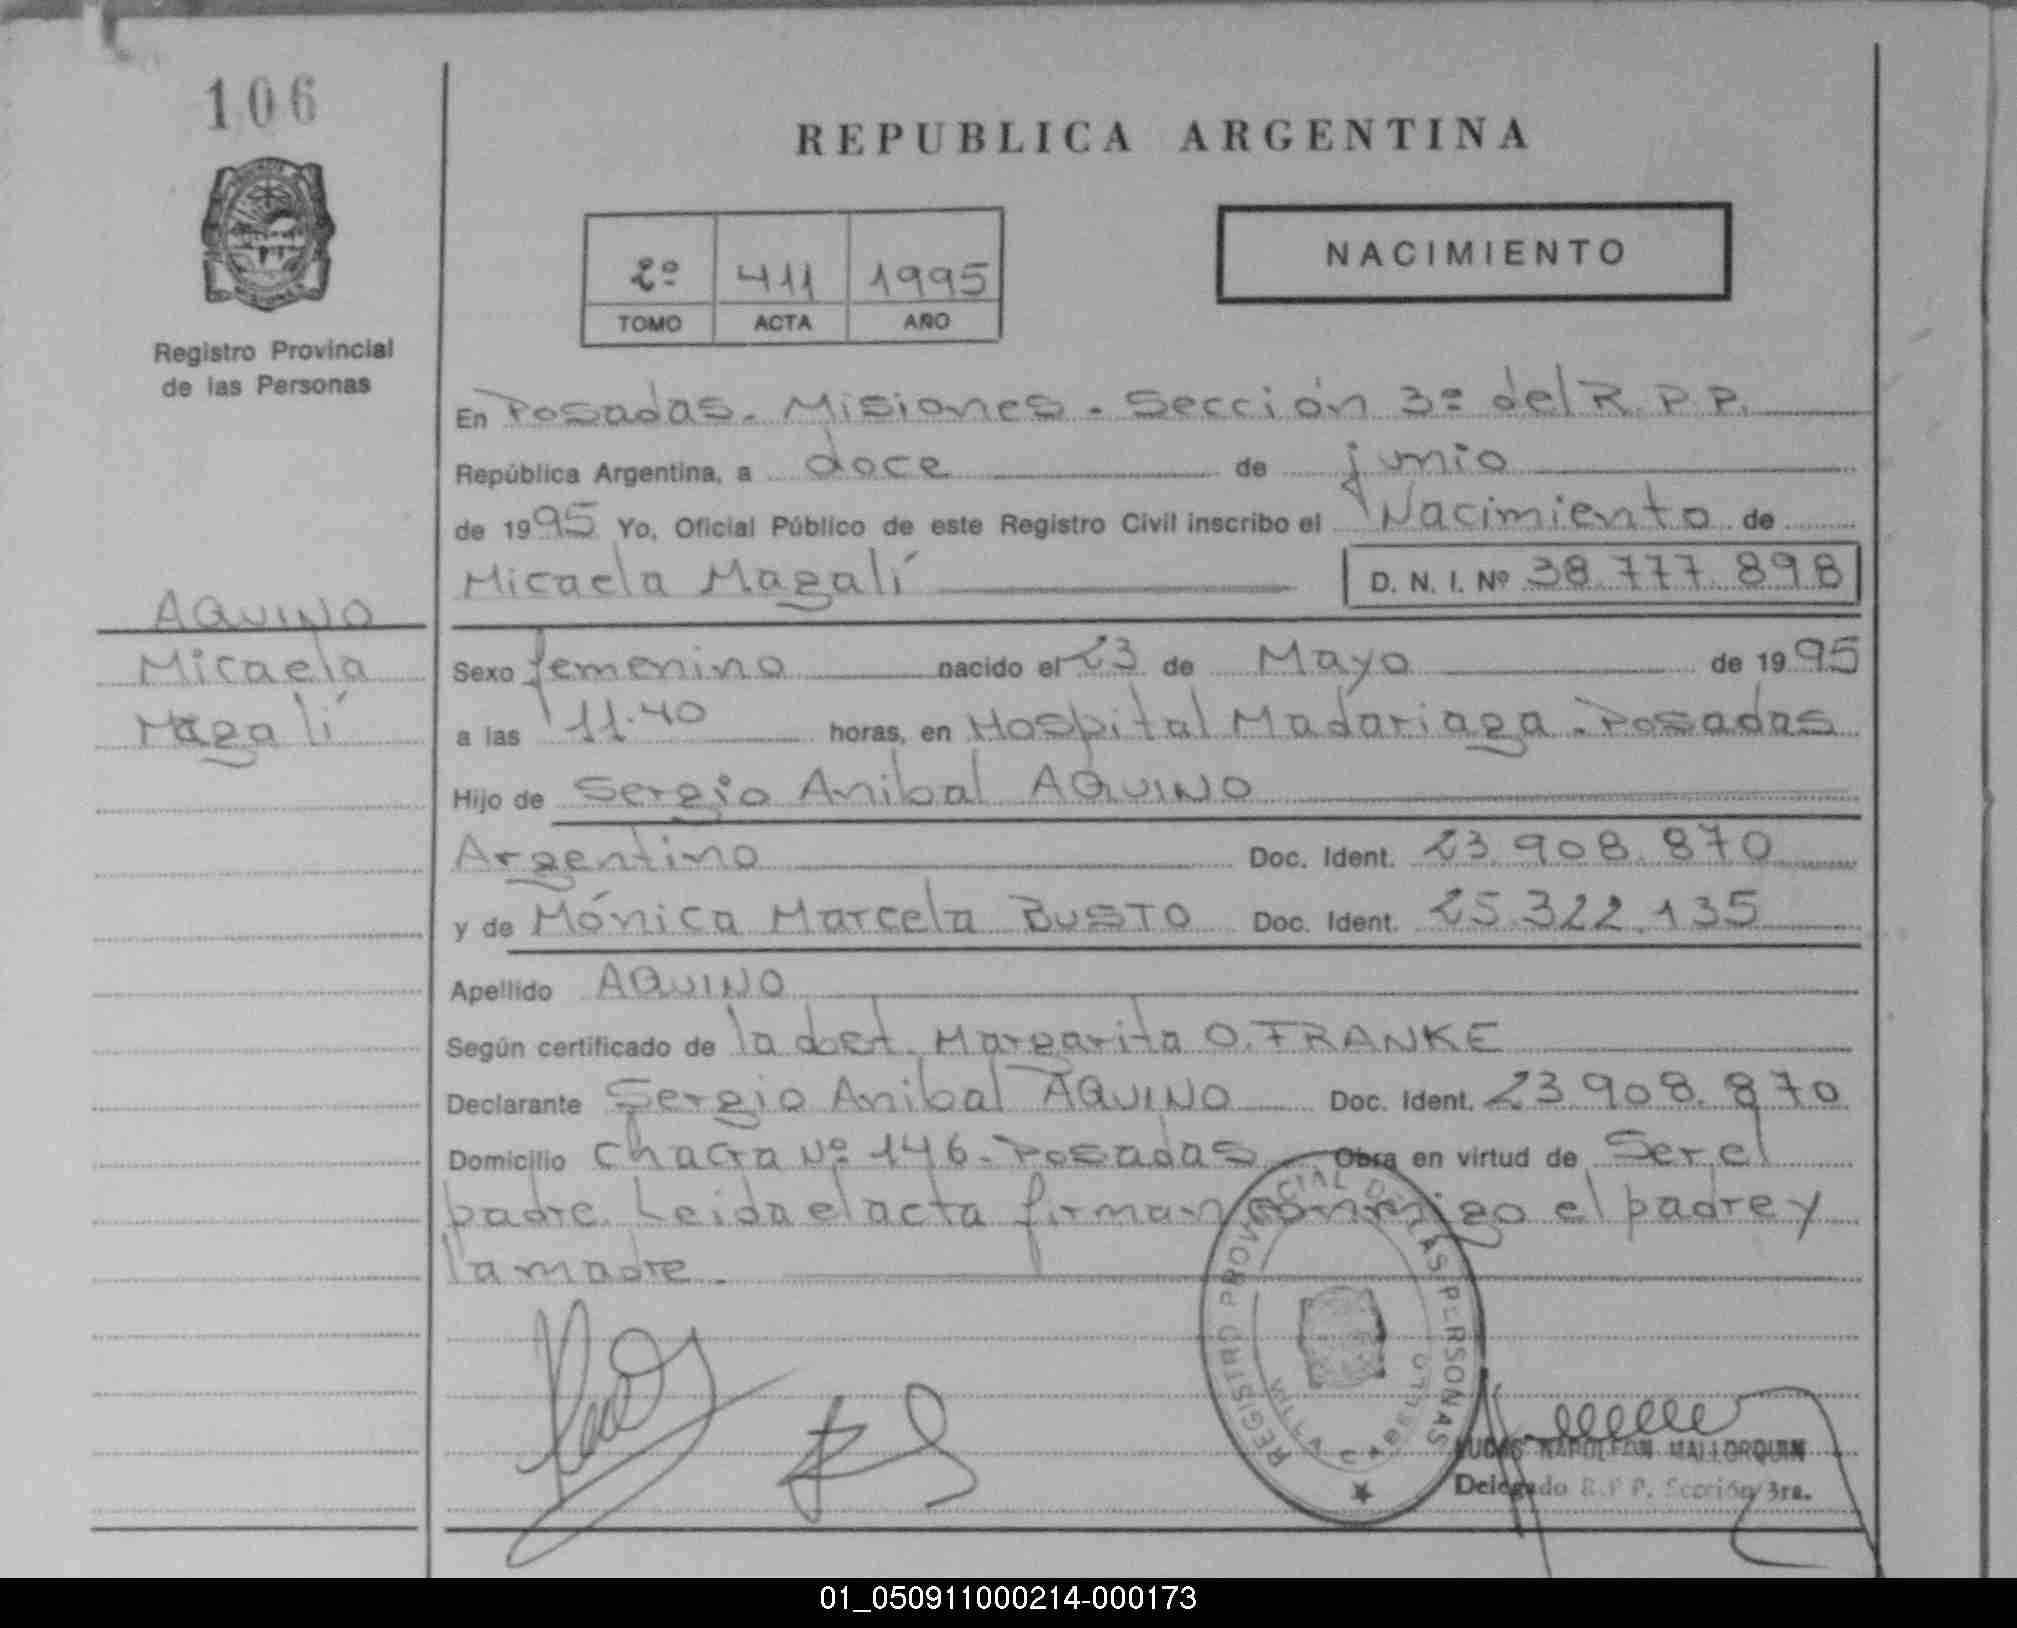 106
REPUBLICA ARGENTINA
NACIMIENTO
2º 411 1995
TOMO ACTA AÑO
Registro Provincial
de las Personas
En Posadas. Misiones. Sección 3ª del R.P.P.
República Argentina, a doce de junio
de 1995 Yo, Oficial Público de este Registro Civil inscribo el Nacimiento de
Micaela Magalí D. N. I. Nº 38.777.898
AQUINO
Micaela
Magalí
Sexo femenino nacido el 23 de Mayo de 1995
a las 11.40 horas, en Hospital Madariaga - Posadas
Hijo de Sergio Anibal AQUINO
Argentino Doc. Ident. 23.908.870
y de Mónica Marcela BUSTO Doc. Ident. 25.322.135
Apellido AQUINO
Según certificado de la obst. Margarita O. FRANKE
Declarante Sergio Anibal AQUINO Doc. Ident. 23.908.870
Domicilio Chacra Nº 146. Posadas Obra en virtud de Ser el
padre. Leida el acta firman conmigo el padre y
la madre.
REGISTRO PROVINCIAL DE LAS PERSONAS
VILLA CABELLO
LUCAS NAPOLEON MALLORQUIN
Delegado R.P.P. Sección 3ra.
01_050911000214-000173